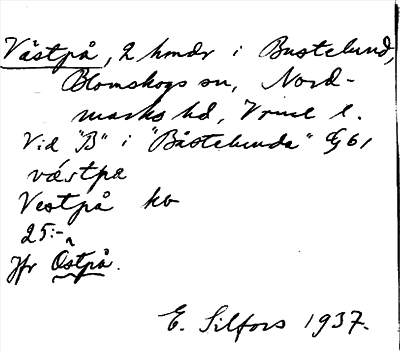 Västpå, 2 hmdr i Bustelund,
Blomskogs sn, Nord-
marks hd, Vrml l.
Vid "B" i "Båstelunda" Eg 61
västpa
Vestpå ko
25:-
Jfr Östpå.
E. Silfors 1937.